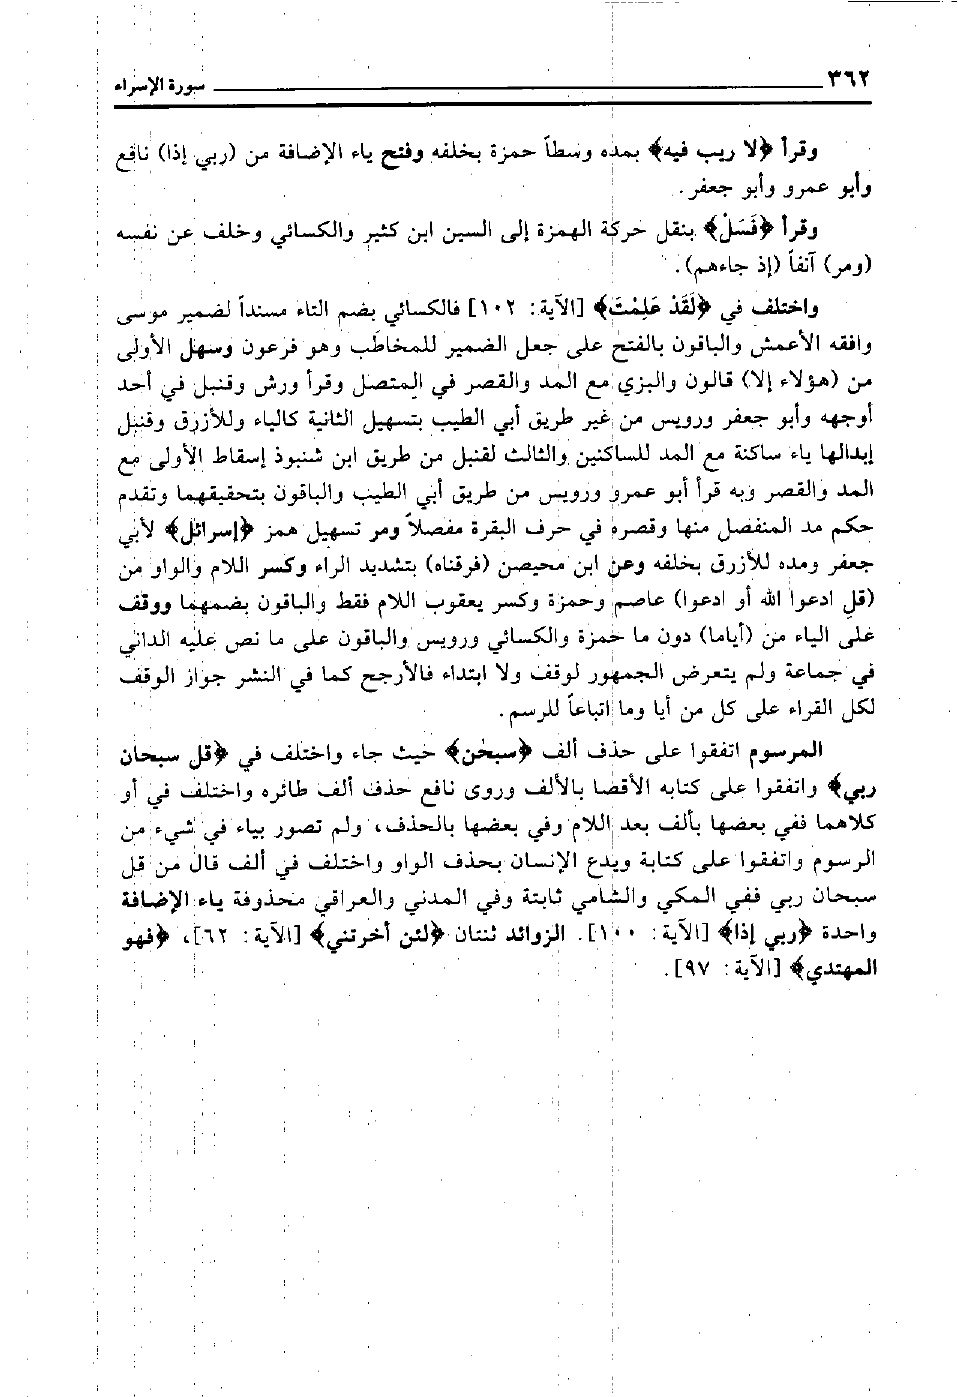 ٣٦٢ سورة الإسراء
وقرأ ﴿لا ريب فيه﴾ بمده وسطاً حمزة بخلفه وفتح ياء الإضافة من (ربي إذا) نافع
وأبو عمرو وأبو جعفر.
وقرأ ﴿فَسَلْ﴾ بنقل حركة الهمزة إلى السين ابن كثير والكسائي وخلف عن نفسه
(ومر) آنفاً (إذ جاءهم).
واختلف في ﴿لَقَدْ عَلِمْتَ﴾ [الآية: ١٠٢] فالكسائي بضم التاء مسنداً لضمير موسى
وافقه الأعمش والباقون بالفتح على جعل الضمير للمخاطب وهو فرعون وسهل الأولى
من (هؤلاء إلا) قالون والبزي مع المد والقصر في المتصل وقرأ ورش وقنبل في أحد
أوجهه وأبو جعفر ورويس من غير طريق أبي الطيب بتسهيل الثانية كالياء وللأزرق وقنبل
إبدالها ياء ساكنة مع المد للساكنين والثالث لقنبل من طريق ابن شنبوذ إسقاط الأولى مع
المد والقصر وبه قرأ أبو عمرو ورويس من طريق أبي الطيب والباقون بتحقيقهما وتقدم
حكم مد المنفصل منها وقصره في حرف البقرة مفصلاً ومر تسهيل همز ﴿إسرائل﴾ لأبي
جعفر ومده للأزرق بخلفه وعن ابن محيصن (فرقناه) بتشديد الراء وكسر اللام والواو من
(قلِ ادعوا الله أو ادعوا) عاصم وحمزة وكسر يعقوب اللام فقط والباقون بضمهما ووقف
على الياء من (أياما) دون ما حمزة والكسائي ورويس والباقون على ما نص عليه الداني
في جماعة ولم يتعرض الجمهور لوقف ولا ابتداء فالأرجح كما في النشر جواز الوقف
لكل القراء على كل من أيا وما اتباعاً للرسم.
المرسوم اتفقوا على حذف ألف ﴿سبحٰن﴾ حيث جاء واختلف في ﴿قل سبحان
ربي﴾ واتفقوا على كتابه الأقصا بالألف وروى نافع حذف ألف طائره واختلف في أو
كلاهما ففي بعضها بألف بعد اللام وفي بعضها بالحذف، ولم تصور بياء في شيء من
الرسوم واتفقوا على كتابة ويدع الإنسان بحذف الواو واختلف في ألف قال من قل
سبحان ربي ففي المكي والشامي ثابتة وفي المدني والعراقي محذوفة ياء الإضافة
واحدة ﴿ربي إذا﴾ [الآية: ١٠٠]. الزوائد ثنتان ﴿لئن أخرتني﴾ [الآية: ٦٢]، ﴿فهو
المهتدي﴾ [الآية: ٩٧].